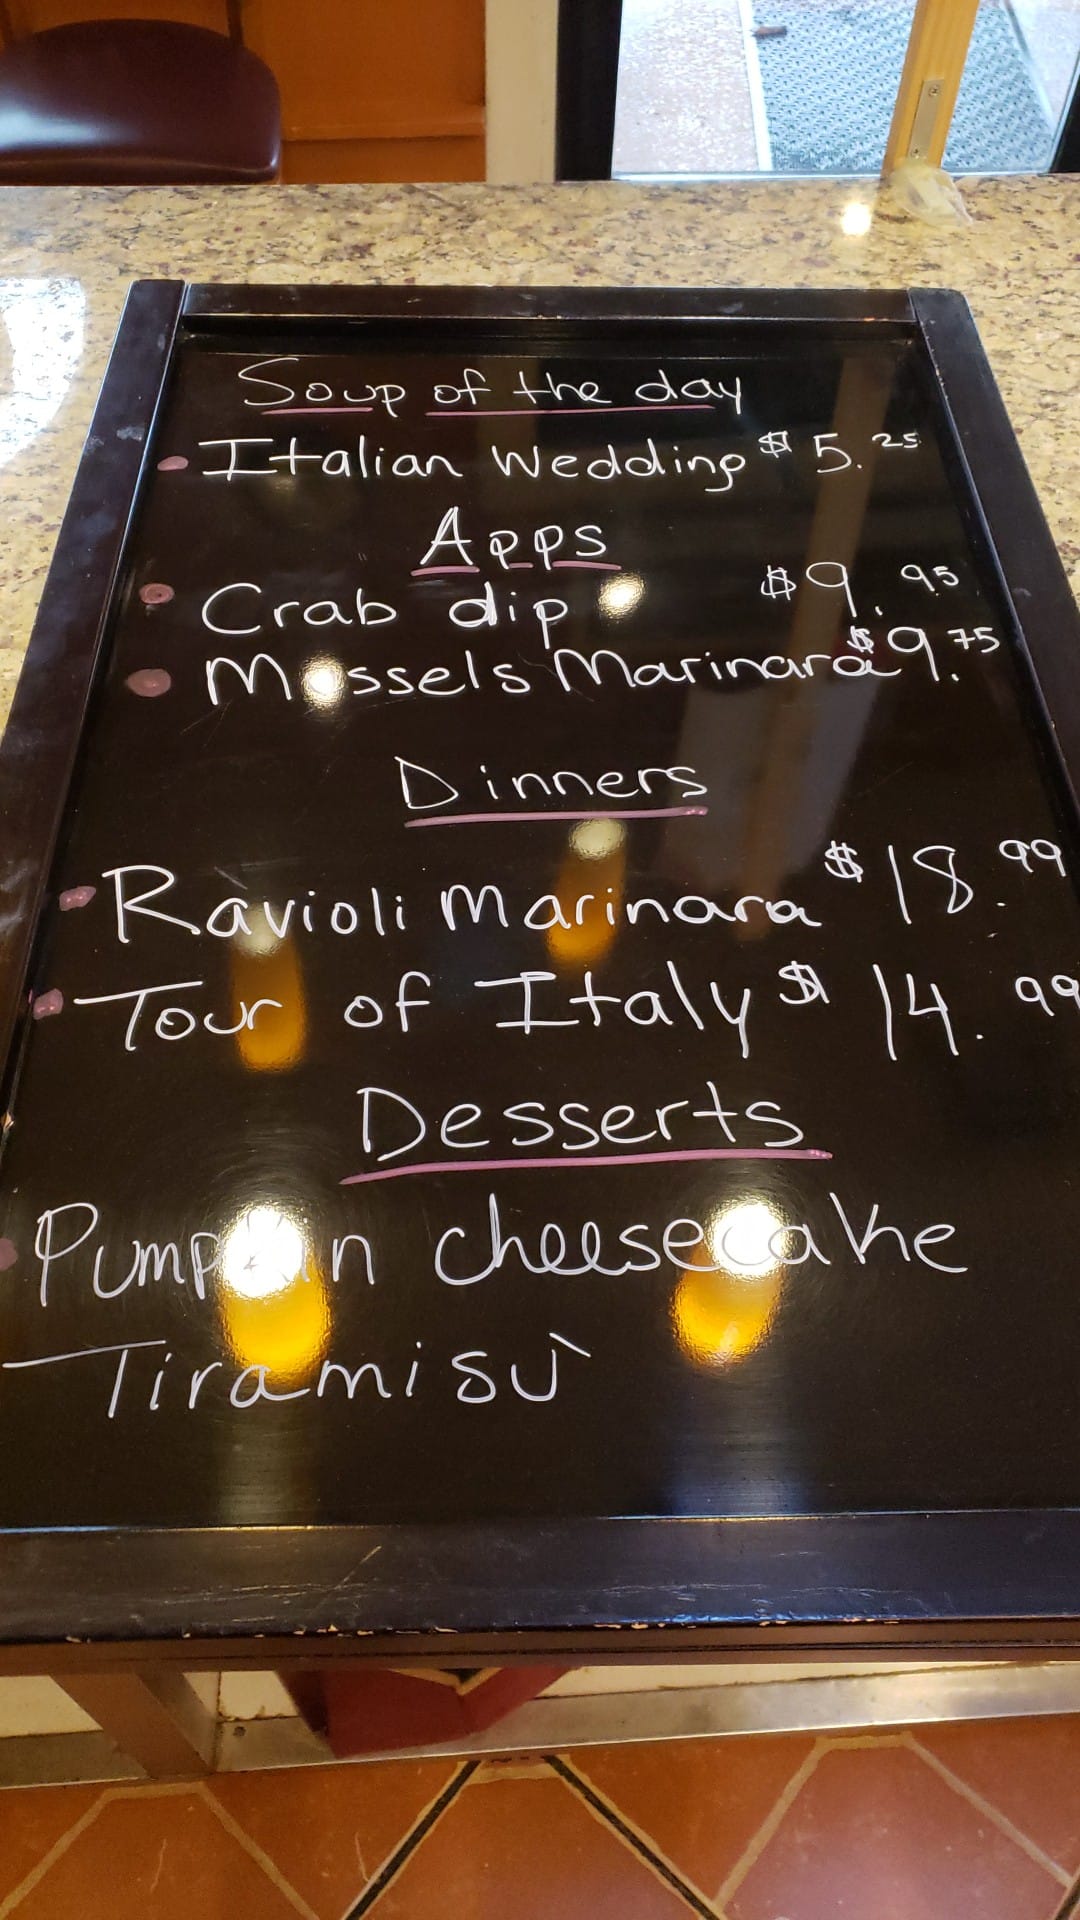 Soup of the day
• Italian Wedding $5.25
Apps
• Crab dip $9.95
• Mussels Marinara $9.75
Dinners
• Ravioli Marinara $18.99
• Tour of Italy $14.99
Desserts
• Pumpkin cheesecake
Tiramisù